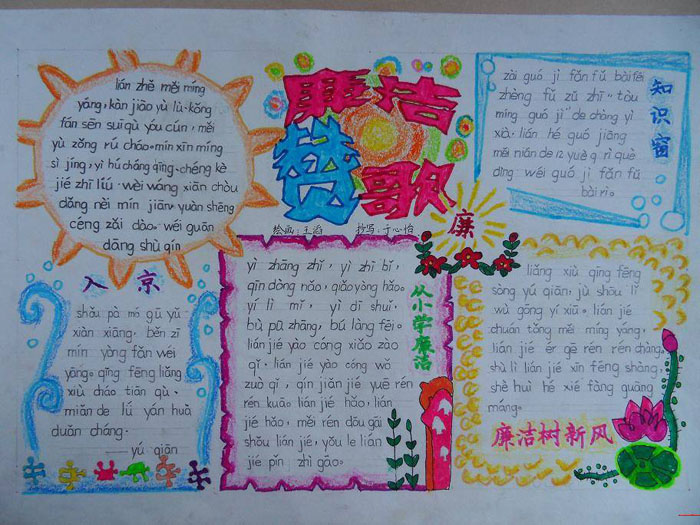 lián zhě měi míng
yáng, kàn jiāo yù lù. kǒng
fán sēn suī qù yóu cún, měi
yù zǒng rú cháo. mín xīn míng
sì jìng, yì hú cháng qīng. chéng kè
jié zhī liú. wèi wàng xiān chòu
dǎng nèi mín jiān. yuàn shēng
céng zǎi dào. wéi guān
dāng shù qín
廉洁
赞歌
绘画:王滔 抄写:于心怡
zài guó jì fǎn fǔ bài fēi
zhèng fǔ zǔ zhī "tòu
míng guó jì" de chàng yì
xià. lián hé guó jiāng
měi nián de 12 yuè 9 rì què
dìng wéi guó jì fǎn fǔ
bài rì.
知识窗
入京
shǒu pà mó gū yǔ
xiàn xiāng. běn zī
mín yòng fǎn wéi
yāng. qīng fēng liǎng
xiù cháo tiān qù.
miǎn de lǘ yán huà
duǎn cháng.
——yú qiān
yì zhāng zhǐ, yì zhī bǐ,
qín dòng nǎo, qiǎo yòng hǎo.
yí lì mǐ, yì dī shuǐ,
bù pū zhāng, bú làng fèi.
lián jié yào cóng xiǎo zào
qǐ. lián jié yào cóng wǒ
zuò qǐ, qín jiǎn jié yuē rén
rén kuā. lián jié hǎo, lián
jié hǎo, měi rén dōu gāi
shǒu lián jié, yǒu le lián
jié pǐn zhì gāo.
从小学廉洁
廉
liǎng xiù qīng fēng
sòng yú qiān, jù shōu lǐ
wù gōng yí xiū. lián jié
chuán tǒng měi míng yáng,
lián jié ér gē rén rén chàng.
shù lì lián jié xīn fēng shàng,
shè huì hé xié fàng guāng
máng.
廉洁树新风